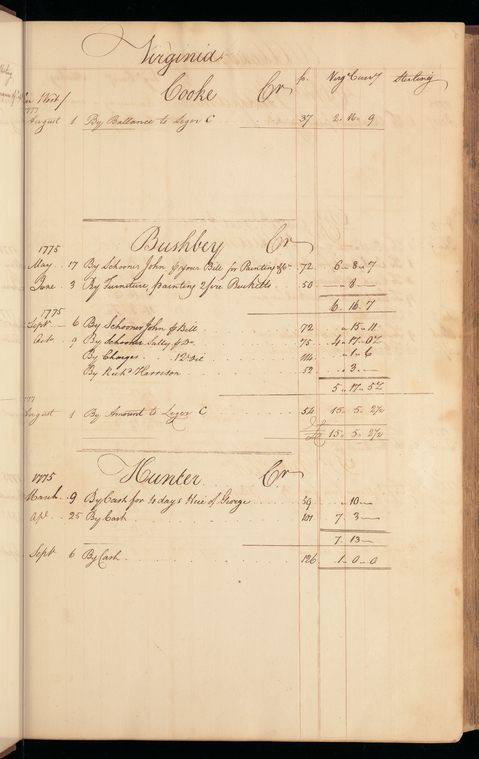 Virginia
fo. Virga Curry Sterling
Cooke Cr
1777
August 1 By Ballance to Leger C 37 2 16 9
Bushbey Cr
1775
May 17 By Schooner John for your Bill for Painting &c 72 6 8 7
June 3 By Furniture, painting 2 fire Bucketts 50 8
6 16 7
1775
Sept 6 By Schooner John for Bill 72 15 11
Oct 9 By Schooner Sally, for Do 75 4 17 0½
By Charges 12 Dec 114 1 6
By Richd Harrison 52 3
5 17 5½
1777
August 1 By Amount to Leger C 54 15 5 2¼
£ 15 5 2¼
1775
Hunter Cr
March 9 By Cash for 4 days Hire of George 59 10
Apl 25 By Cash 101 7 3
7 13
Sept 6 By Cash 126 1 0 0